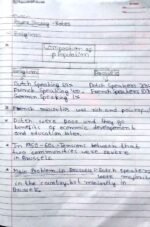 Power Sharing Notes
Belgium
Composition of
population
Belgium
Brussels
Dutch Speaking 59%
Dutch Speakers 20%
French Speaking 40%
French Speakers 80%
German Speaking 1%
French minorities was rich and powerful
Dutch were poor and they got
benefit of economic development
and education later.
In 1950-60s Tensions between that
two communities were severe
in Brussels.
Main Problem in Brussels: Dutch Speakers
were majority
in the country but minority in
Brussels